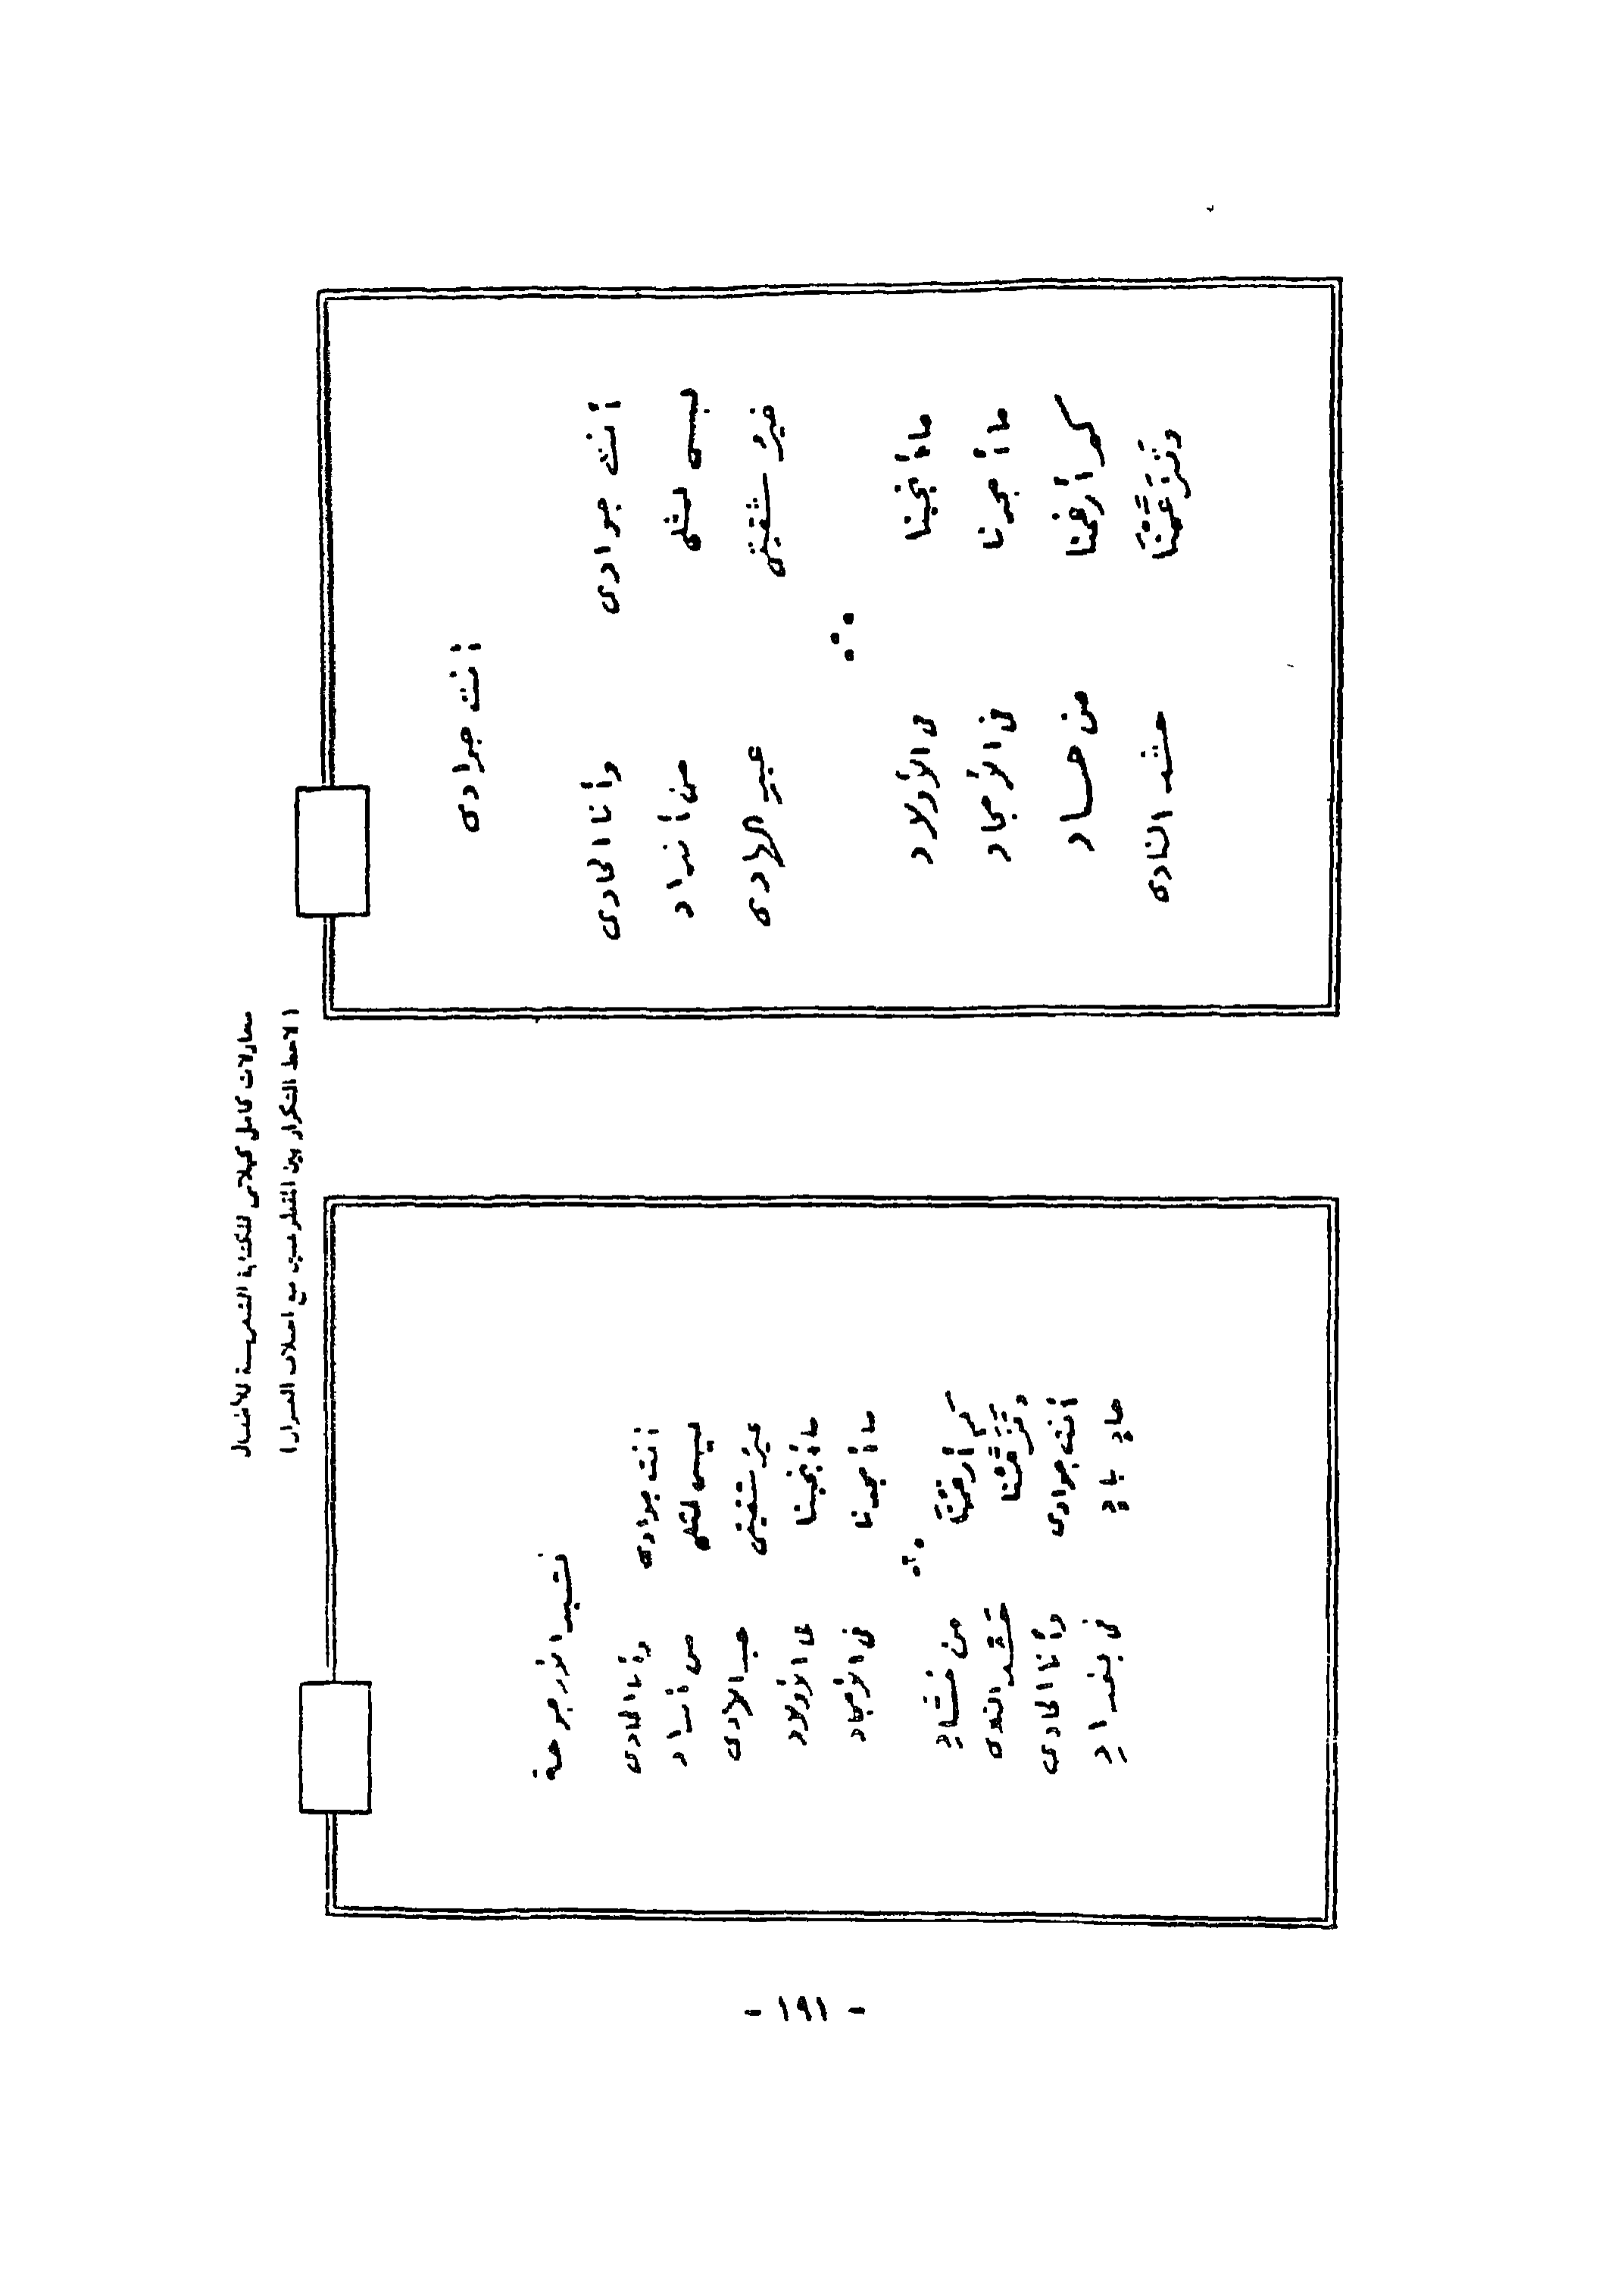 محاولات كامل كيلانى للكتابة الشعرية للأطفال
(لاحظ التكرار بين المقطوعتين مع اختلاف العنوان)
أنت جوادى
أنت جوادى وأنا الحادى
ليس لمثلى من أنداد
خيرُ شقيقى عبد الهادى
ما أنجبنا فى الأولاد
ما أمجدنا فى الأمجاد
كم أرغمنا من حساد
وتزعَّمْنَا حشد النادى
نشيد الأرجوحة
أنت جوادى وأنا الحادى
ليس لمثلى من أنداد
غيرُ شقيقى عبد الهادى
ما أنجبنا فى الأولاد
ما أمجدنا فى الأمجاد
كم أرغمْنَا من حُسَّادِ
وتزعَّمْنَا حشد النادى
أنت جوادى وأنا الحادى
فى بغدادِ
- ١٩١ -